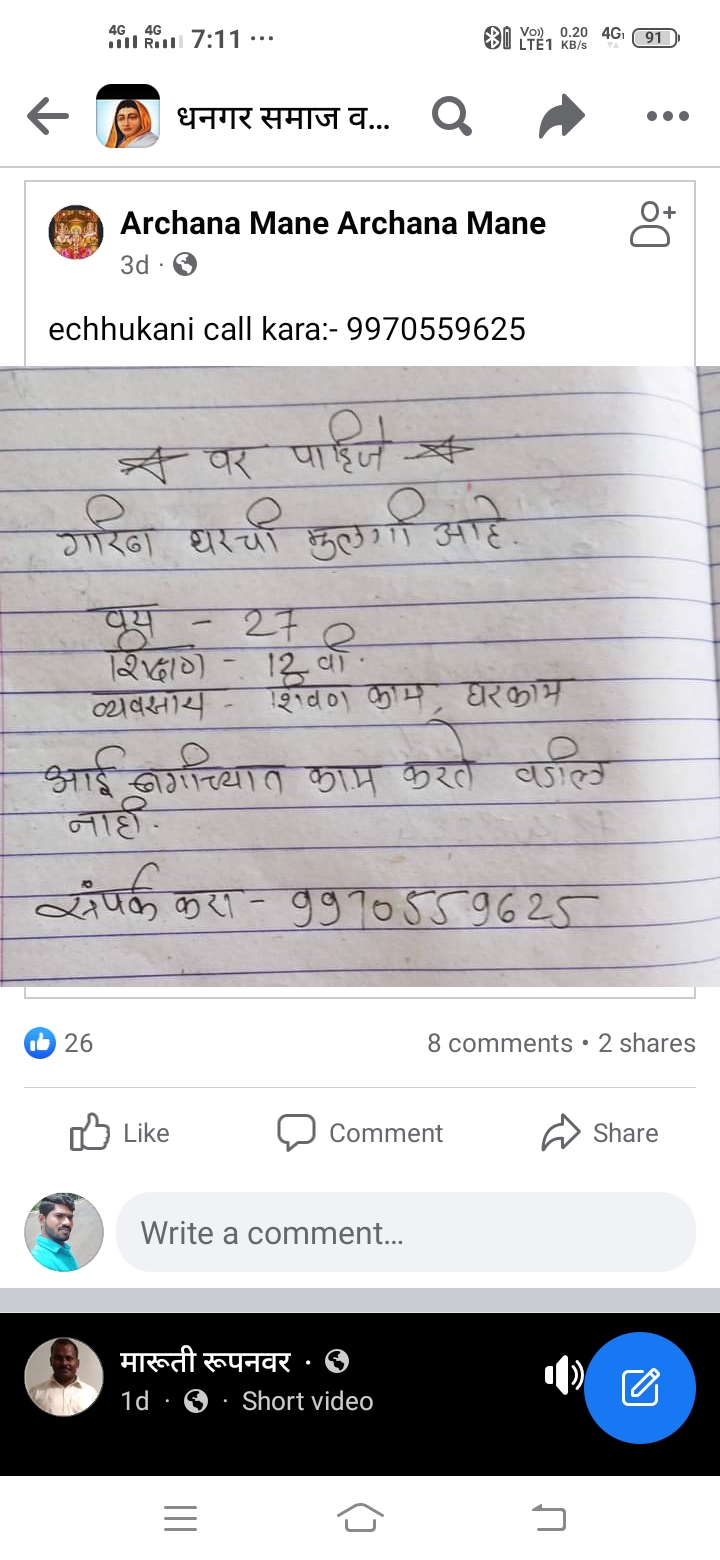 4G 4G R 7:11 ... Vo)) LTE1 0.20 KB/s 4G 91
धनगर समाज व...
Archana Mane Archana Mane
3d ·
echhukani call kara:- 9970559625
वर पाहिजे
गरिब घरची मुलगी आहे.
वय - 27
शिक्षण - 12 वी.
व्यवसाय - शिवण काम, घरकाम
आई बगीच्यात काम करते वडील
नाही.
संपर्क करा - 9970559625
26 8 comments • 2 shares
Like Comment Share
Write a comment...
मारूती रूपनवर ·
1d · · Short video